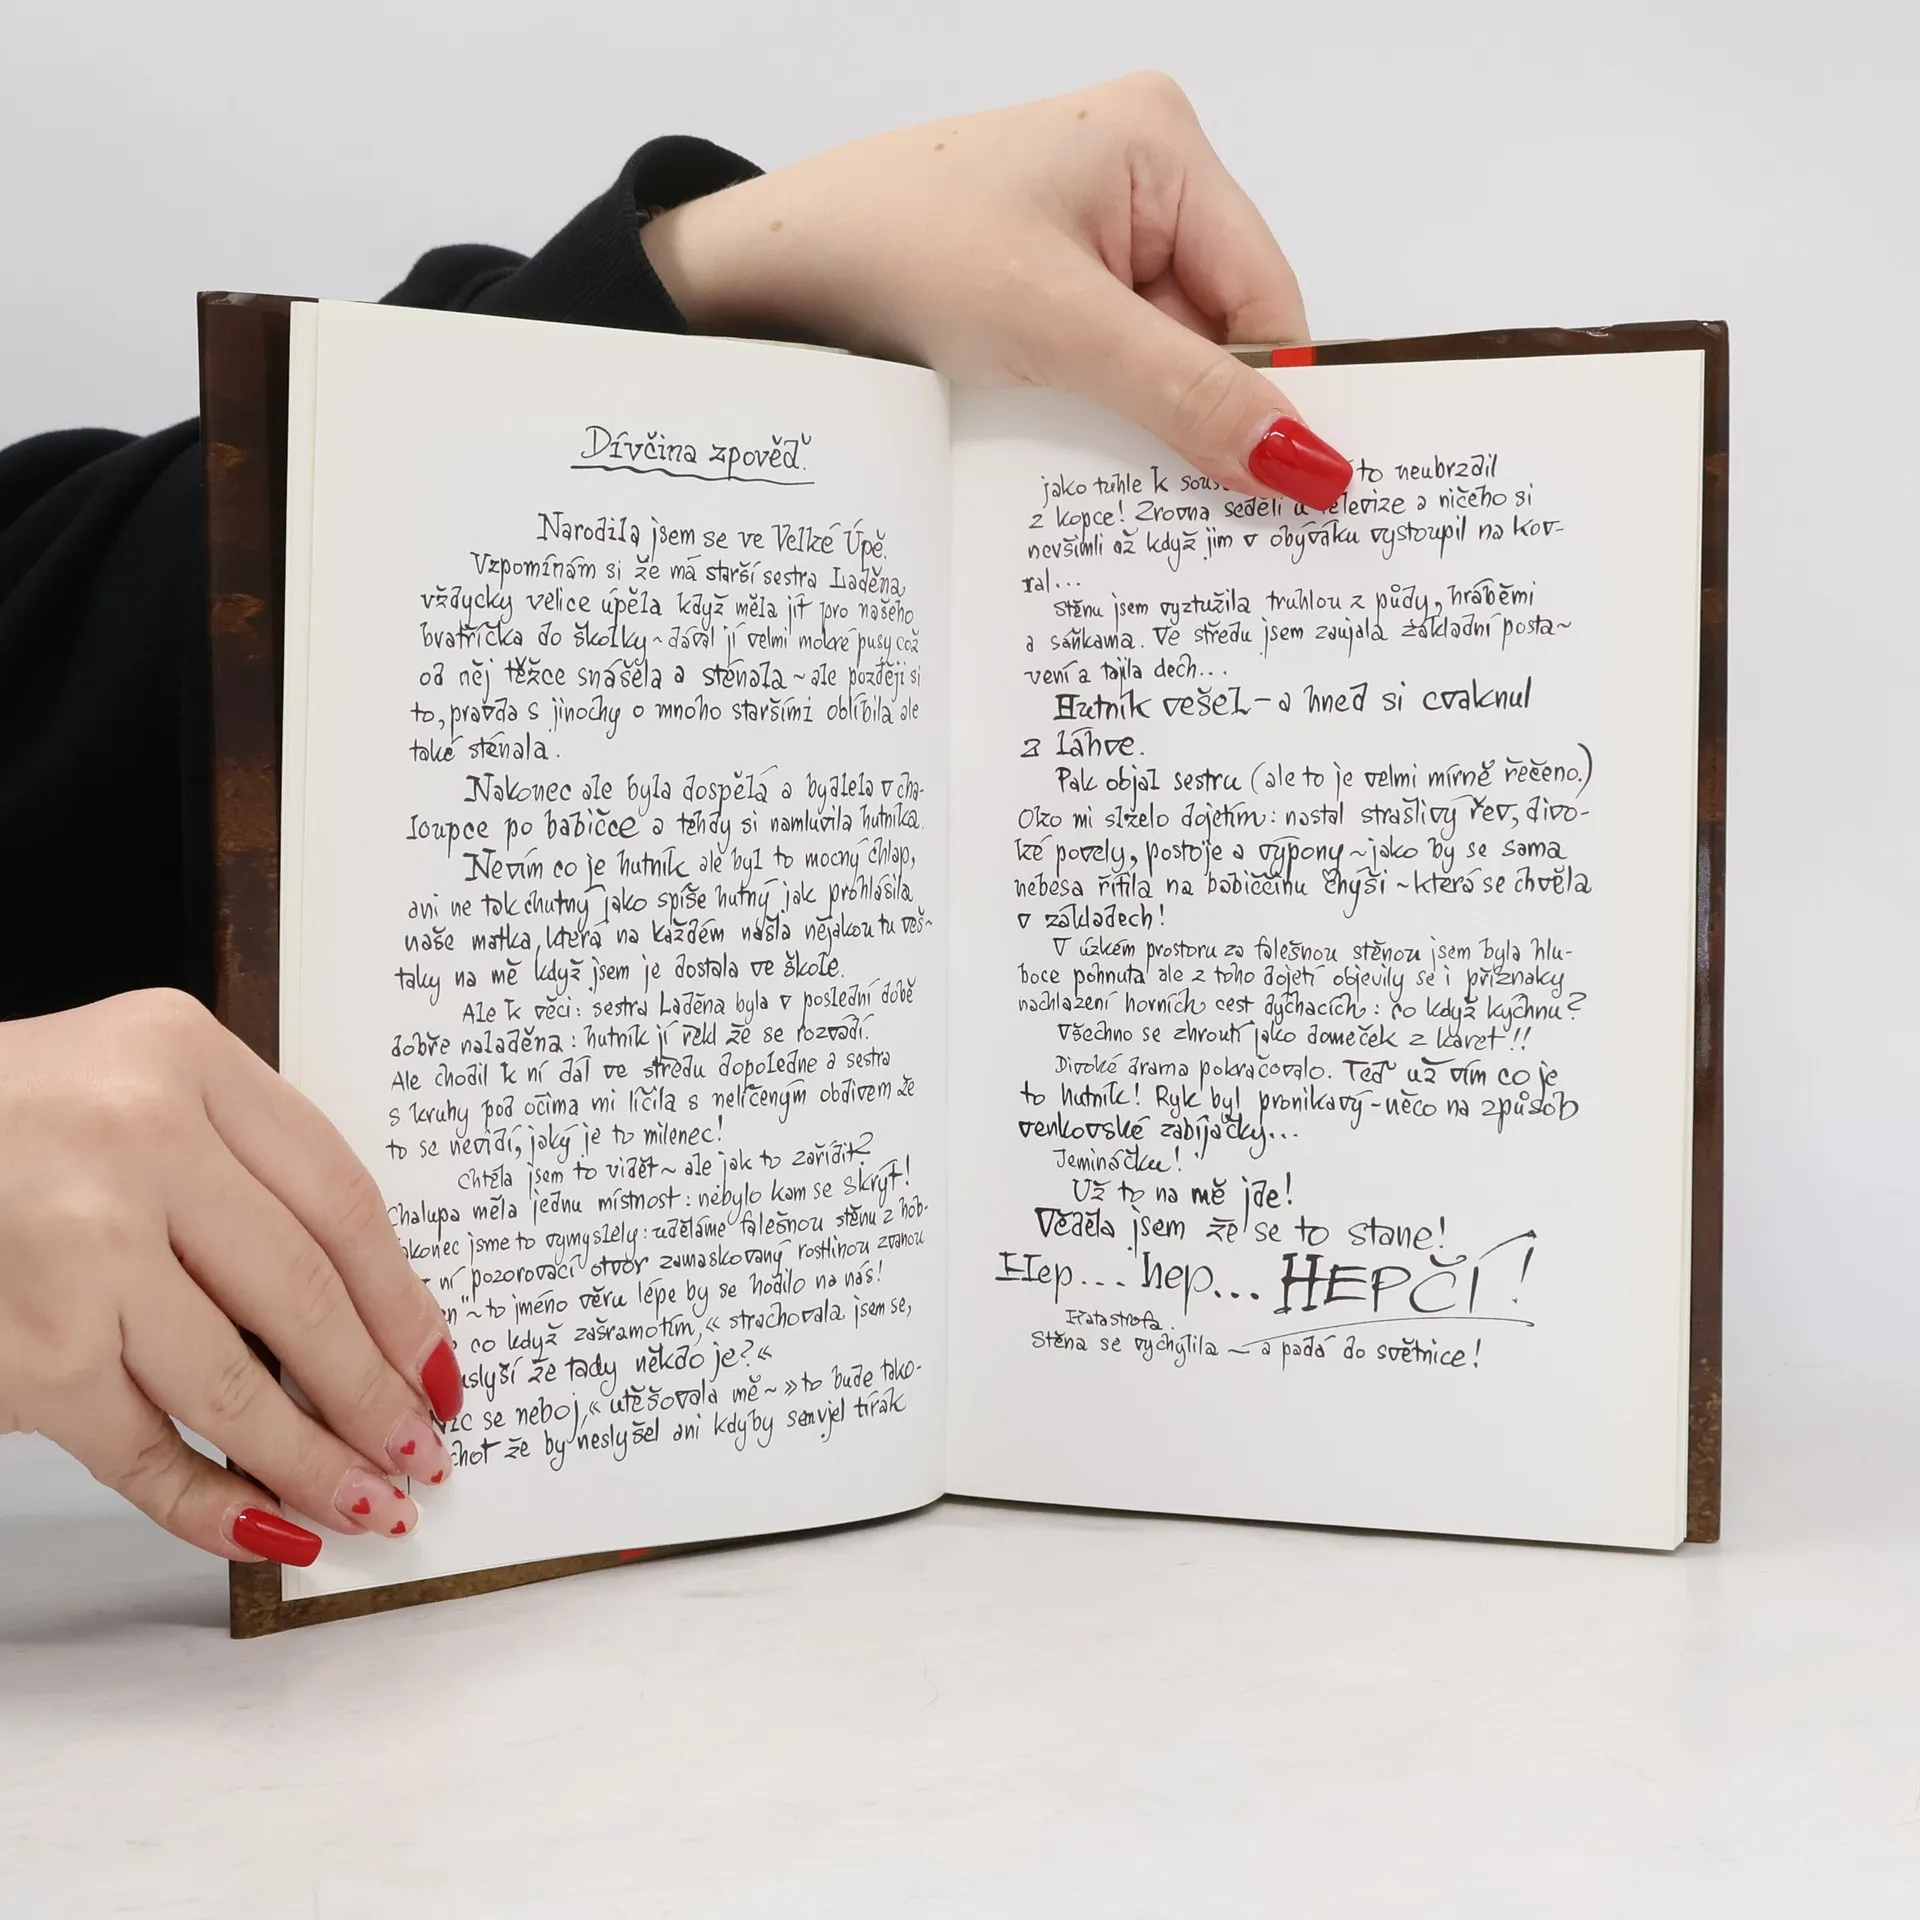 Dívčina zpověď.
Narodila jsem se ve Velké Úpě.
Vzpomínám si že má starší sestra Laděna
vždycky velice úpěla když měla jít pro našeho
bratříčka do školky ~ dával jí velmi mokré pusy což
od něj těžce snášela a sténala ~ ale později si
to, pravda s jinochy o mnoho staršími oblíbila ale
také sténala.
Nakonec ale byla dospělá a bydlela v cha-
loupce po babičce a tehdy si namluvila hutníka.
Nevím co je hutník ale byl to mocný chlap,
ani ne tak chutný jako spíše hutný jak prohlásila
naše matka, která na každém našla nějakou tu veš ~
taky na mě když jsem je dostala ve škole.
Ale k věci: sestra Laděna byla v poslední době
dobře naladěna: hutník jí řekl že se rozvádí.
Ale chodil k ní dál ve středu dopoledne a sestra
s kruhy pod očima mi líčila s nelíčeným obdivem že
to se nevidí, jaký je to milenec!
Chtěla jsem to vidět ~ ale jak to zařídit?
Chalupa měla jednu místnost: nebylo kam se skrýt!
konec jsme to vymyslely: uděláme falešnou stěnu z hob-
ní pozorovací otvor zamaskovaný rostlinou zvanou
n" ~ to jméno věru lépe by se hodilo na nás!
co když zašramotím,« strachovala jsem se,
uslyší že tady někdo je?«
Nic se neboj,« utěšovala mě ~ »to bude tako-
chot že by neslyšel ani kdyby sem vjel tirák
jako tuhle k sous to neubrzdil
z kopce! Zrovna seděli u televize a ničeho si
nevšimli až když jim v obýváku vystoupil na kov-
ral...
Stěnu jsem vyztužila truhlou z půdy, hráběmi
a sáňkama. Ve středu jsem zaujala základní posta ~
vení a tajila dech...
Hutník vešel – a hned si cvaknul
z láhve.
Pak objal sestru (ale to je velmi mírně řečeno.)
Oko mi slzelo dojetím: nastal strašlivý řev, divo-
ké povely, postoje a výpony ~ jako by se sama
nebesa řítila na babiččinu chýši ~ která se chvěla
v základech!
V úzkém prostoru za falešnou stěnou jsem byla hlu-
boce pohnuta ale z toho dojetí objevily se i příznaky
nachlazení horních cest dýchacích: co když kýchnu?
Všechno se zhroutí jako domeček z karet!!
Divoké drama pokračovalo. Teď už vím co je
to hutník! Ryk byl pronikavý – něco na způsob
venkovské zabíjačky...
Jemináčku!
Už to na mě jde!
Věděla jsem že se to stane!
Hep... hep... HEPČÍ!
Katastrofa.
Stěna se vychýlila ~ a padá do světnice!